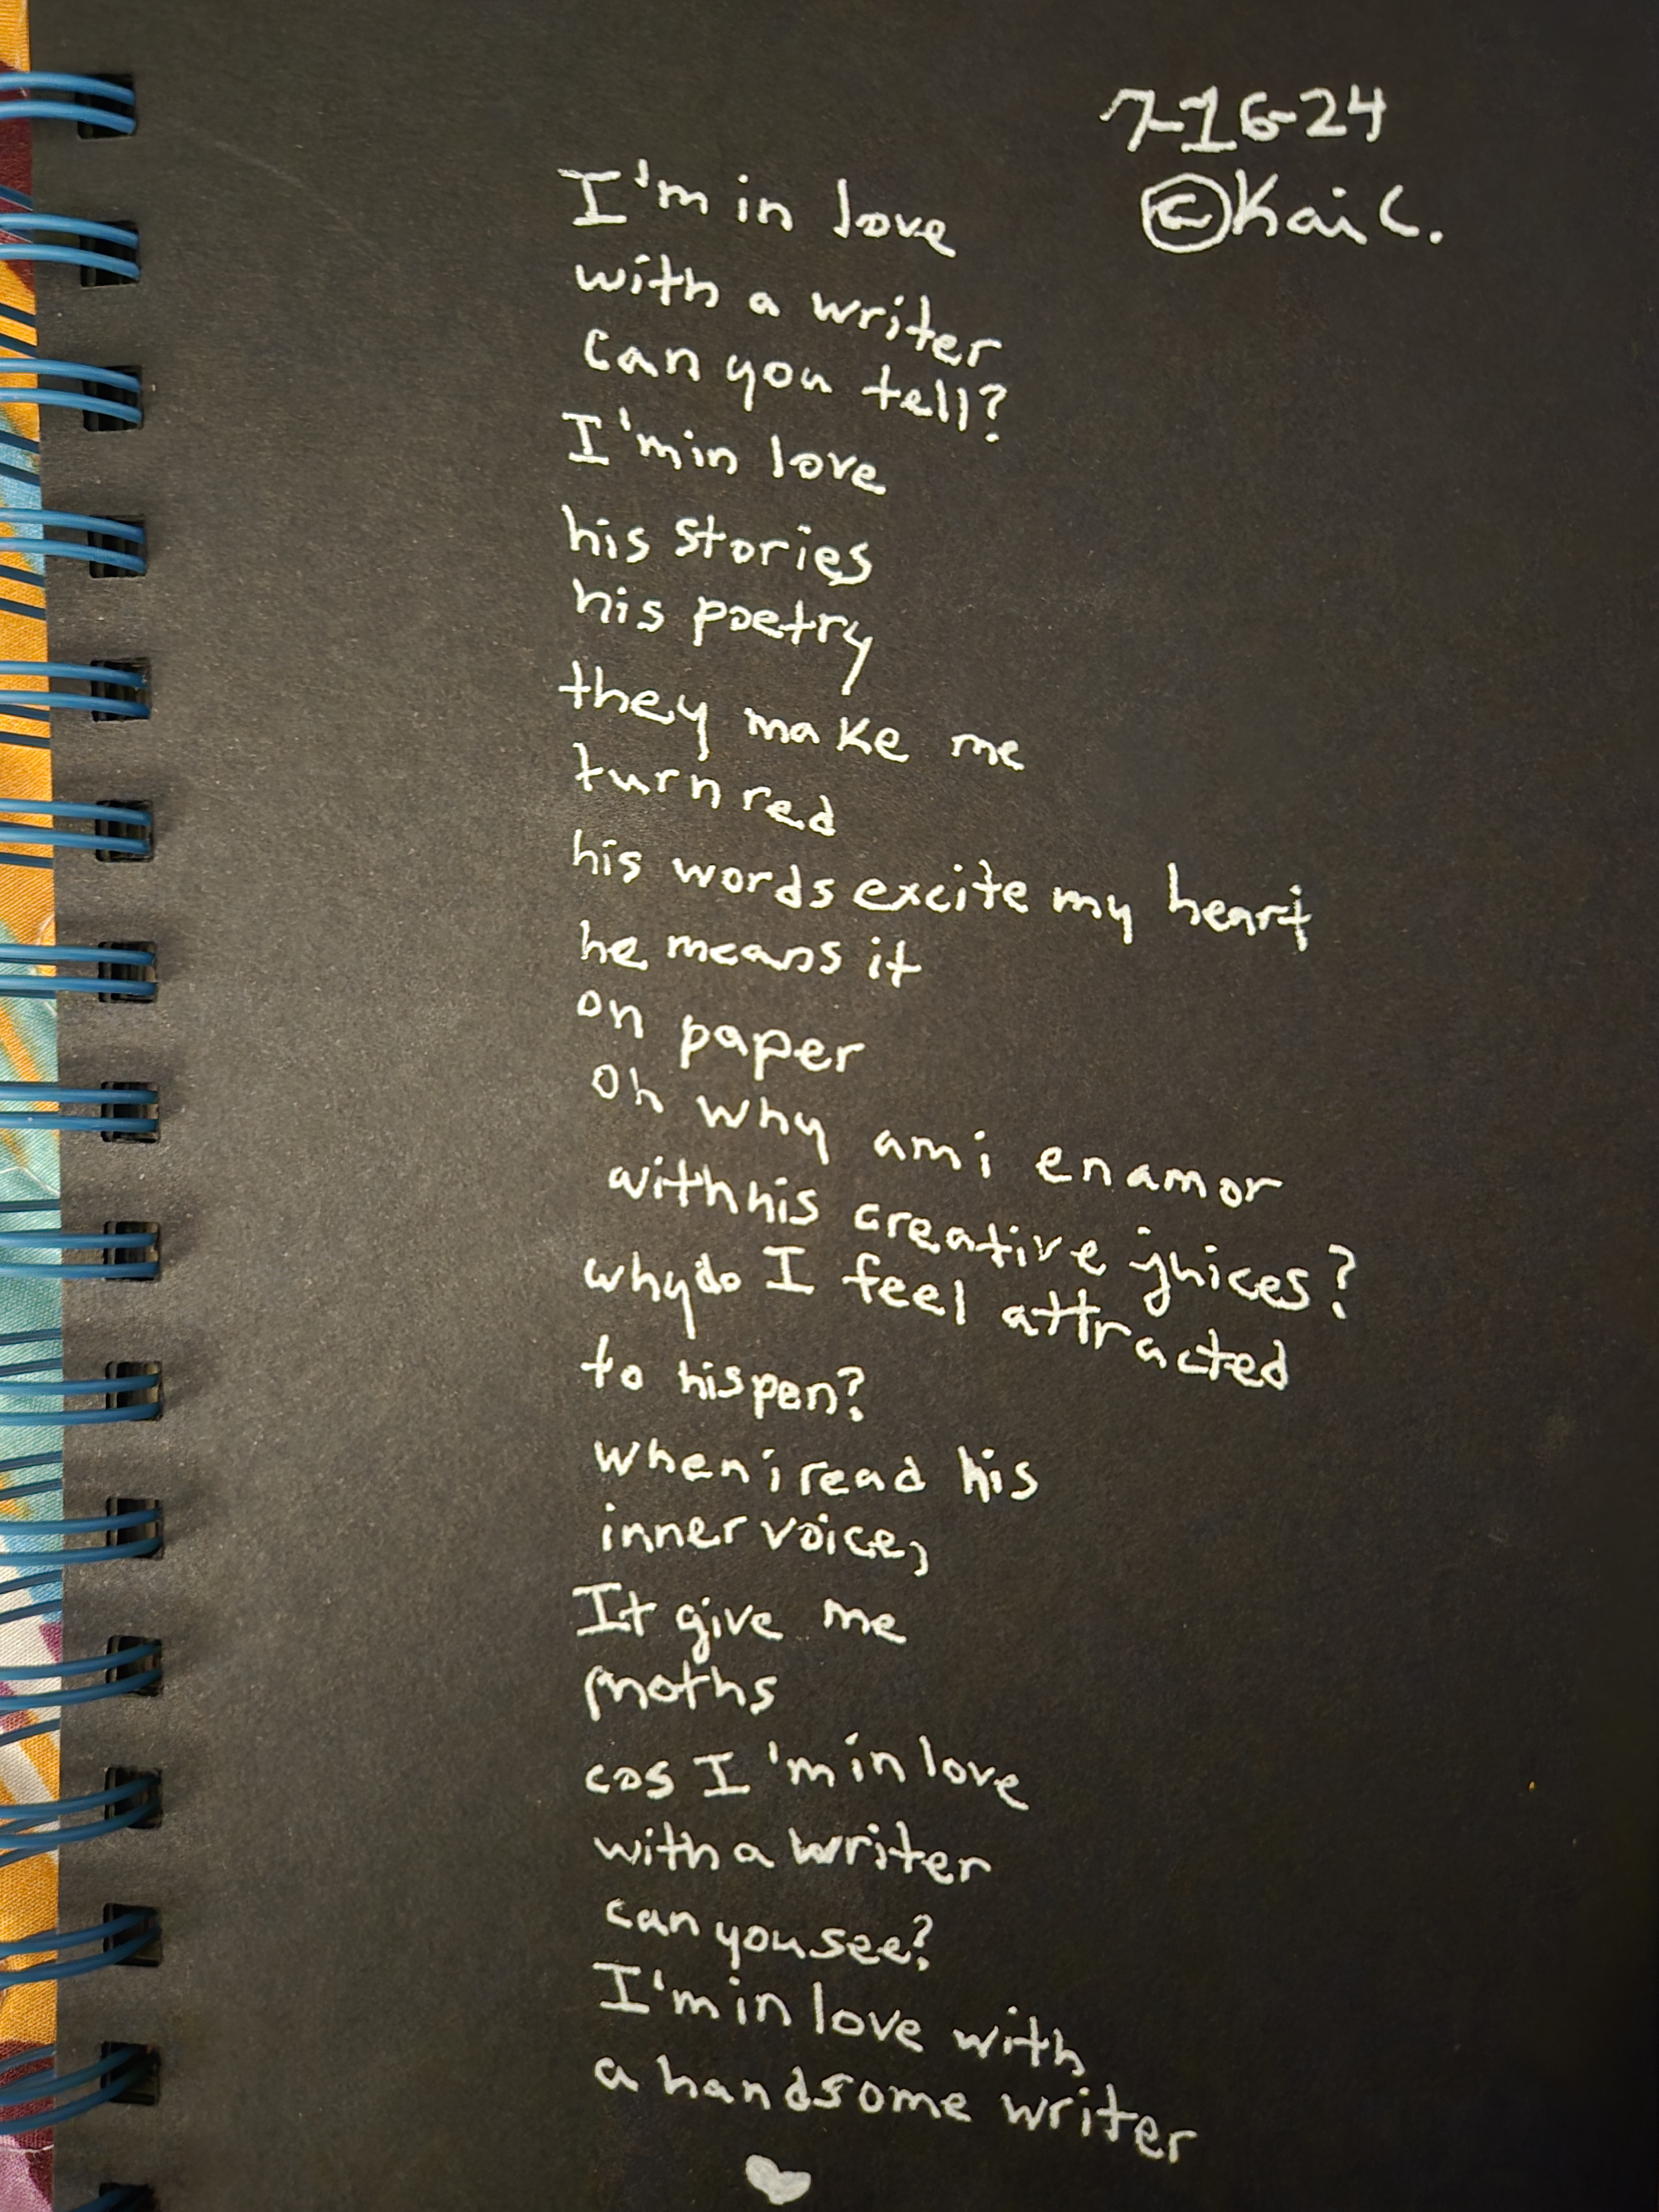 7-16-24
©Kai C.
I'm in love
with a writer
can you tell?
I'm in love
his stories
his poetry
they make me
turn red
his words excite my heart
he means it
on paper
Oh why am i enamor
with his creative juices?
why do I feel attracted
to his pen?
when i read his
inner voice,
It give me
moths
cos I'm in love
with a writer
can you see?
I'm in love with
a handsome writer